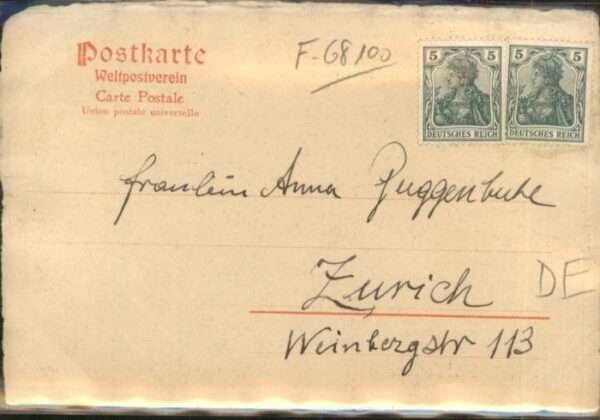 Postkarte
Weltpostverein
Carte Postale
Union postale universelle
F-G8100
5 5 5 5
DEUTSCHES REICH DEUTSCHES REICH
Fräulein Anna Guggenbuhl
Zürich
DE
Weinbergstr 113